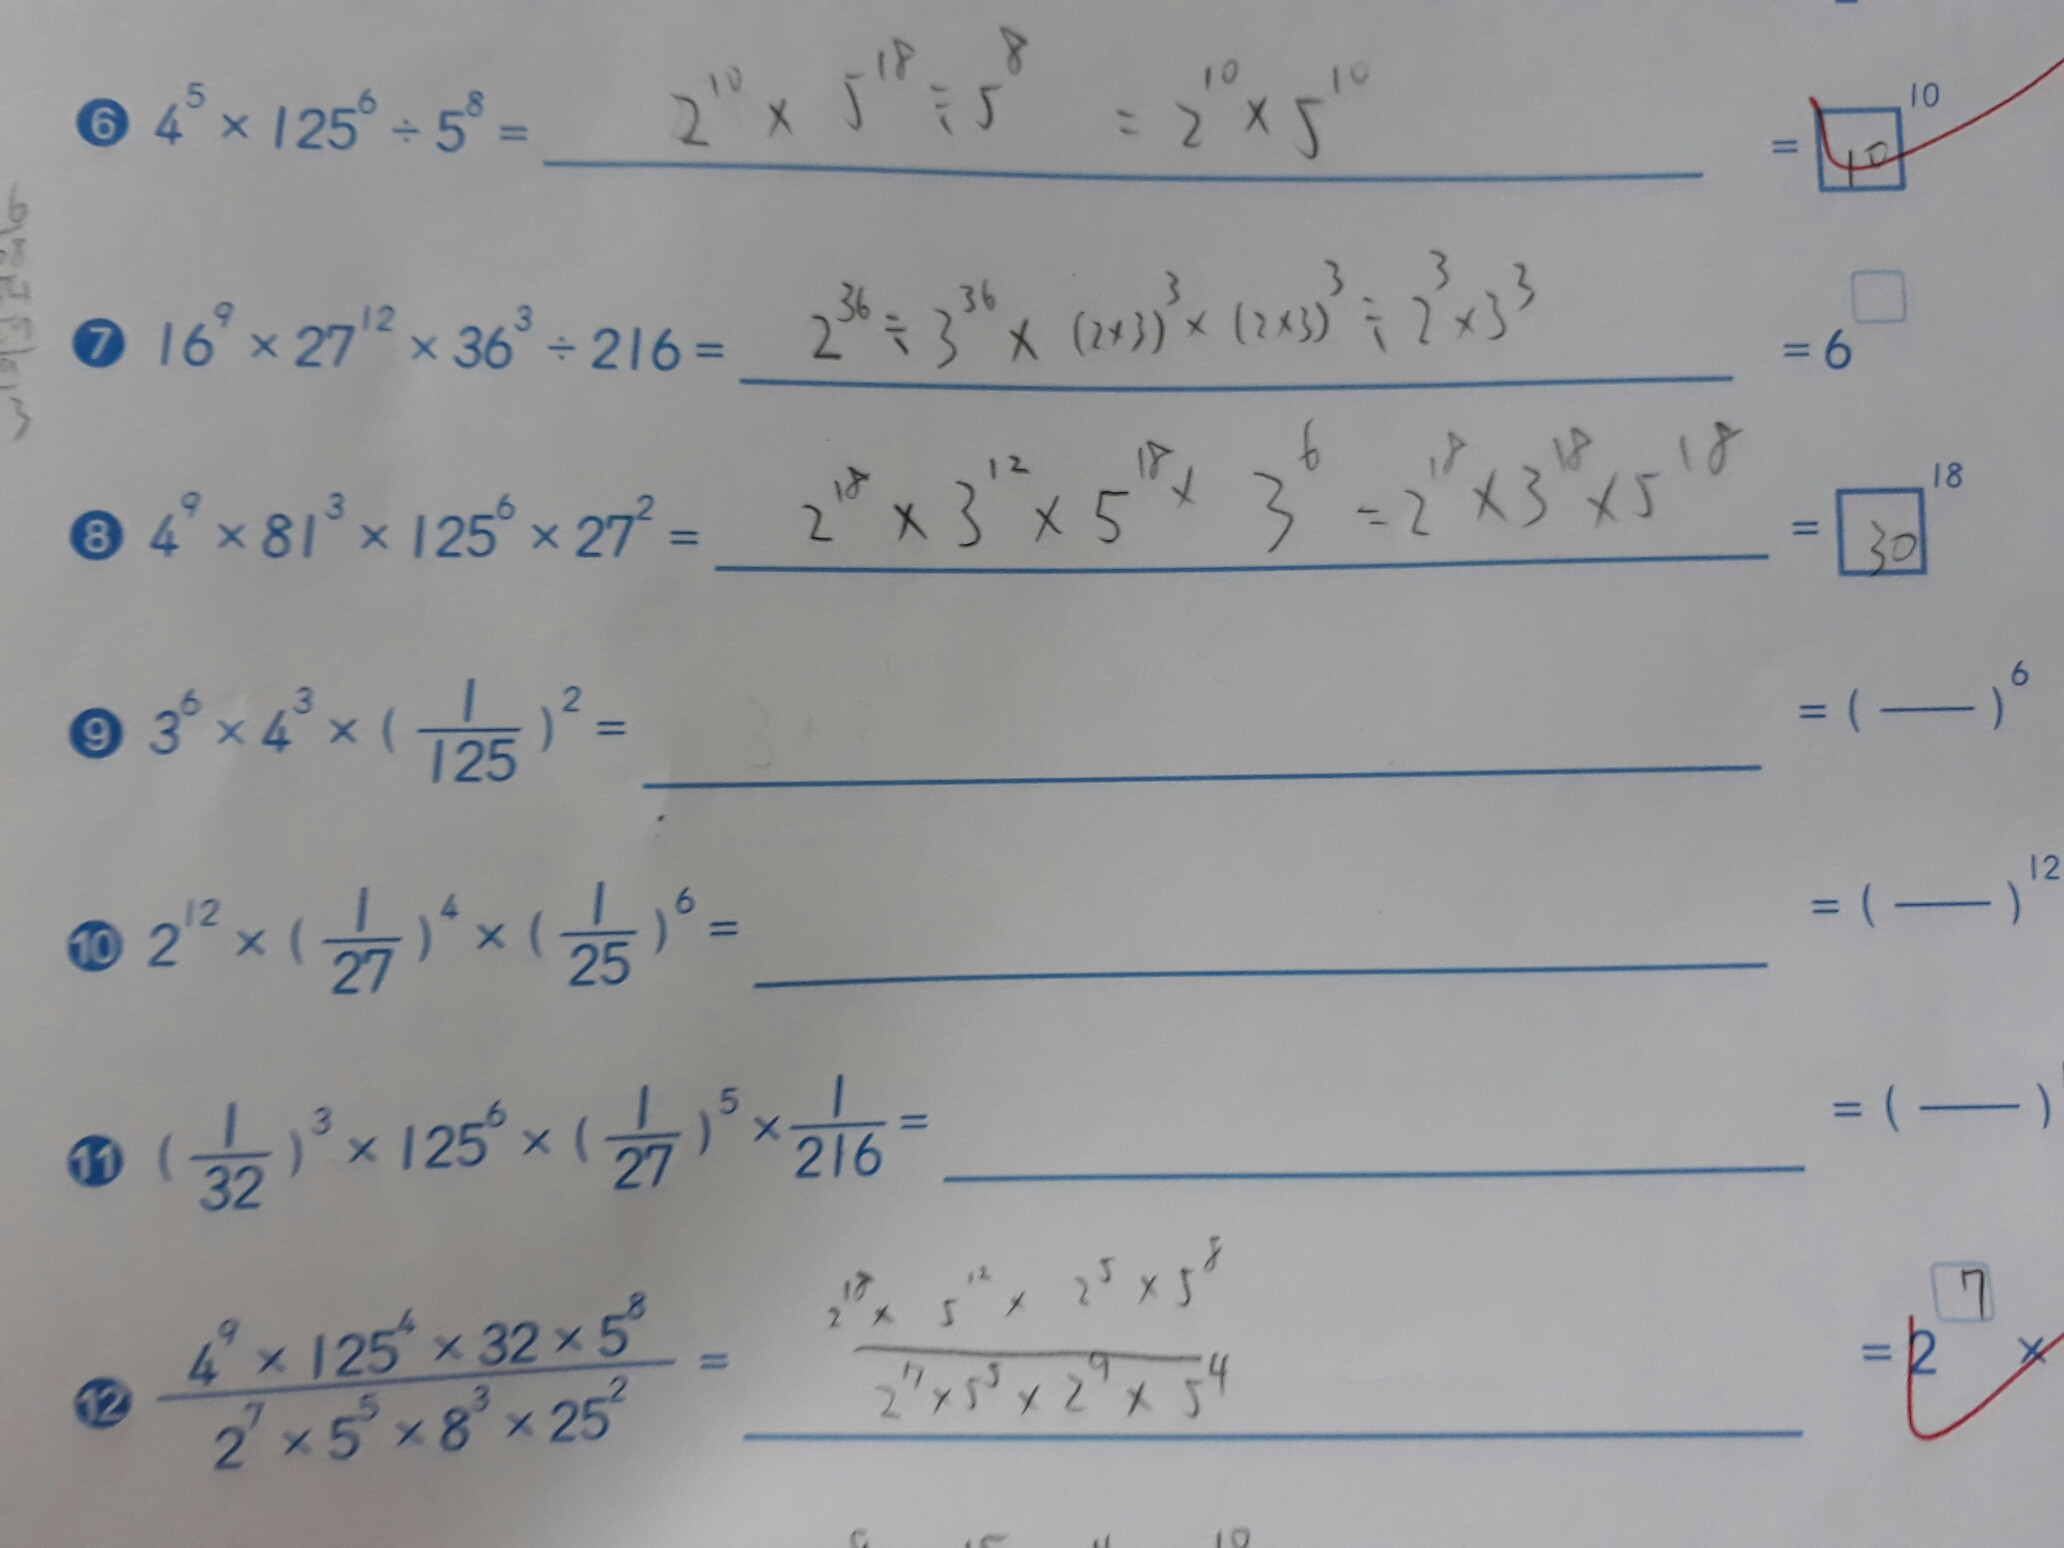 ❻ 4⁵ × 125⁶ ÷ 5⁸ = 2¹⁰ × 5¹⁸ ÷ 5⁸ = 2¹⁰ × 5¹⁰ = 10¹⁰
❼ 16⁹ × 27¹² × 36³ ÷ 216 = 2³⁶ ÷ 3³⁶ × (2×3)³ × (2×3)³ ÷ 2³ × 3³ = 6□
❽ 4⁹ × 81³ × 125⁶ × 27² = 2¹⁸ × 3¹² × 5¹⁸ × 3⁶ = 2¹⁸ × 3¹⁸ × 5¹⁸ = 30¹⁸
❾ 3⁶ × 4³ × (1/125)² = = ( — )⁶
❿ 2¹² × (1/27)⁴ × (1/25)⁶ = = ( — )¹²
⓫ (1/32)³ × 125⁶ × (1/27)⁵ × 1/216 = = ( — )
⓬ 4⁹ × 125⁴ × 32 × 5⁸ / 2⁷ × 5⁵ × 8³ × 25² = 2¹⁸ × 5¹² × 2⁵ × 5⁸ / 2⁷ × 5⁵ × 2⁹ × 5⁴ = 2⁷ ×